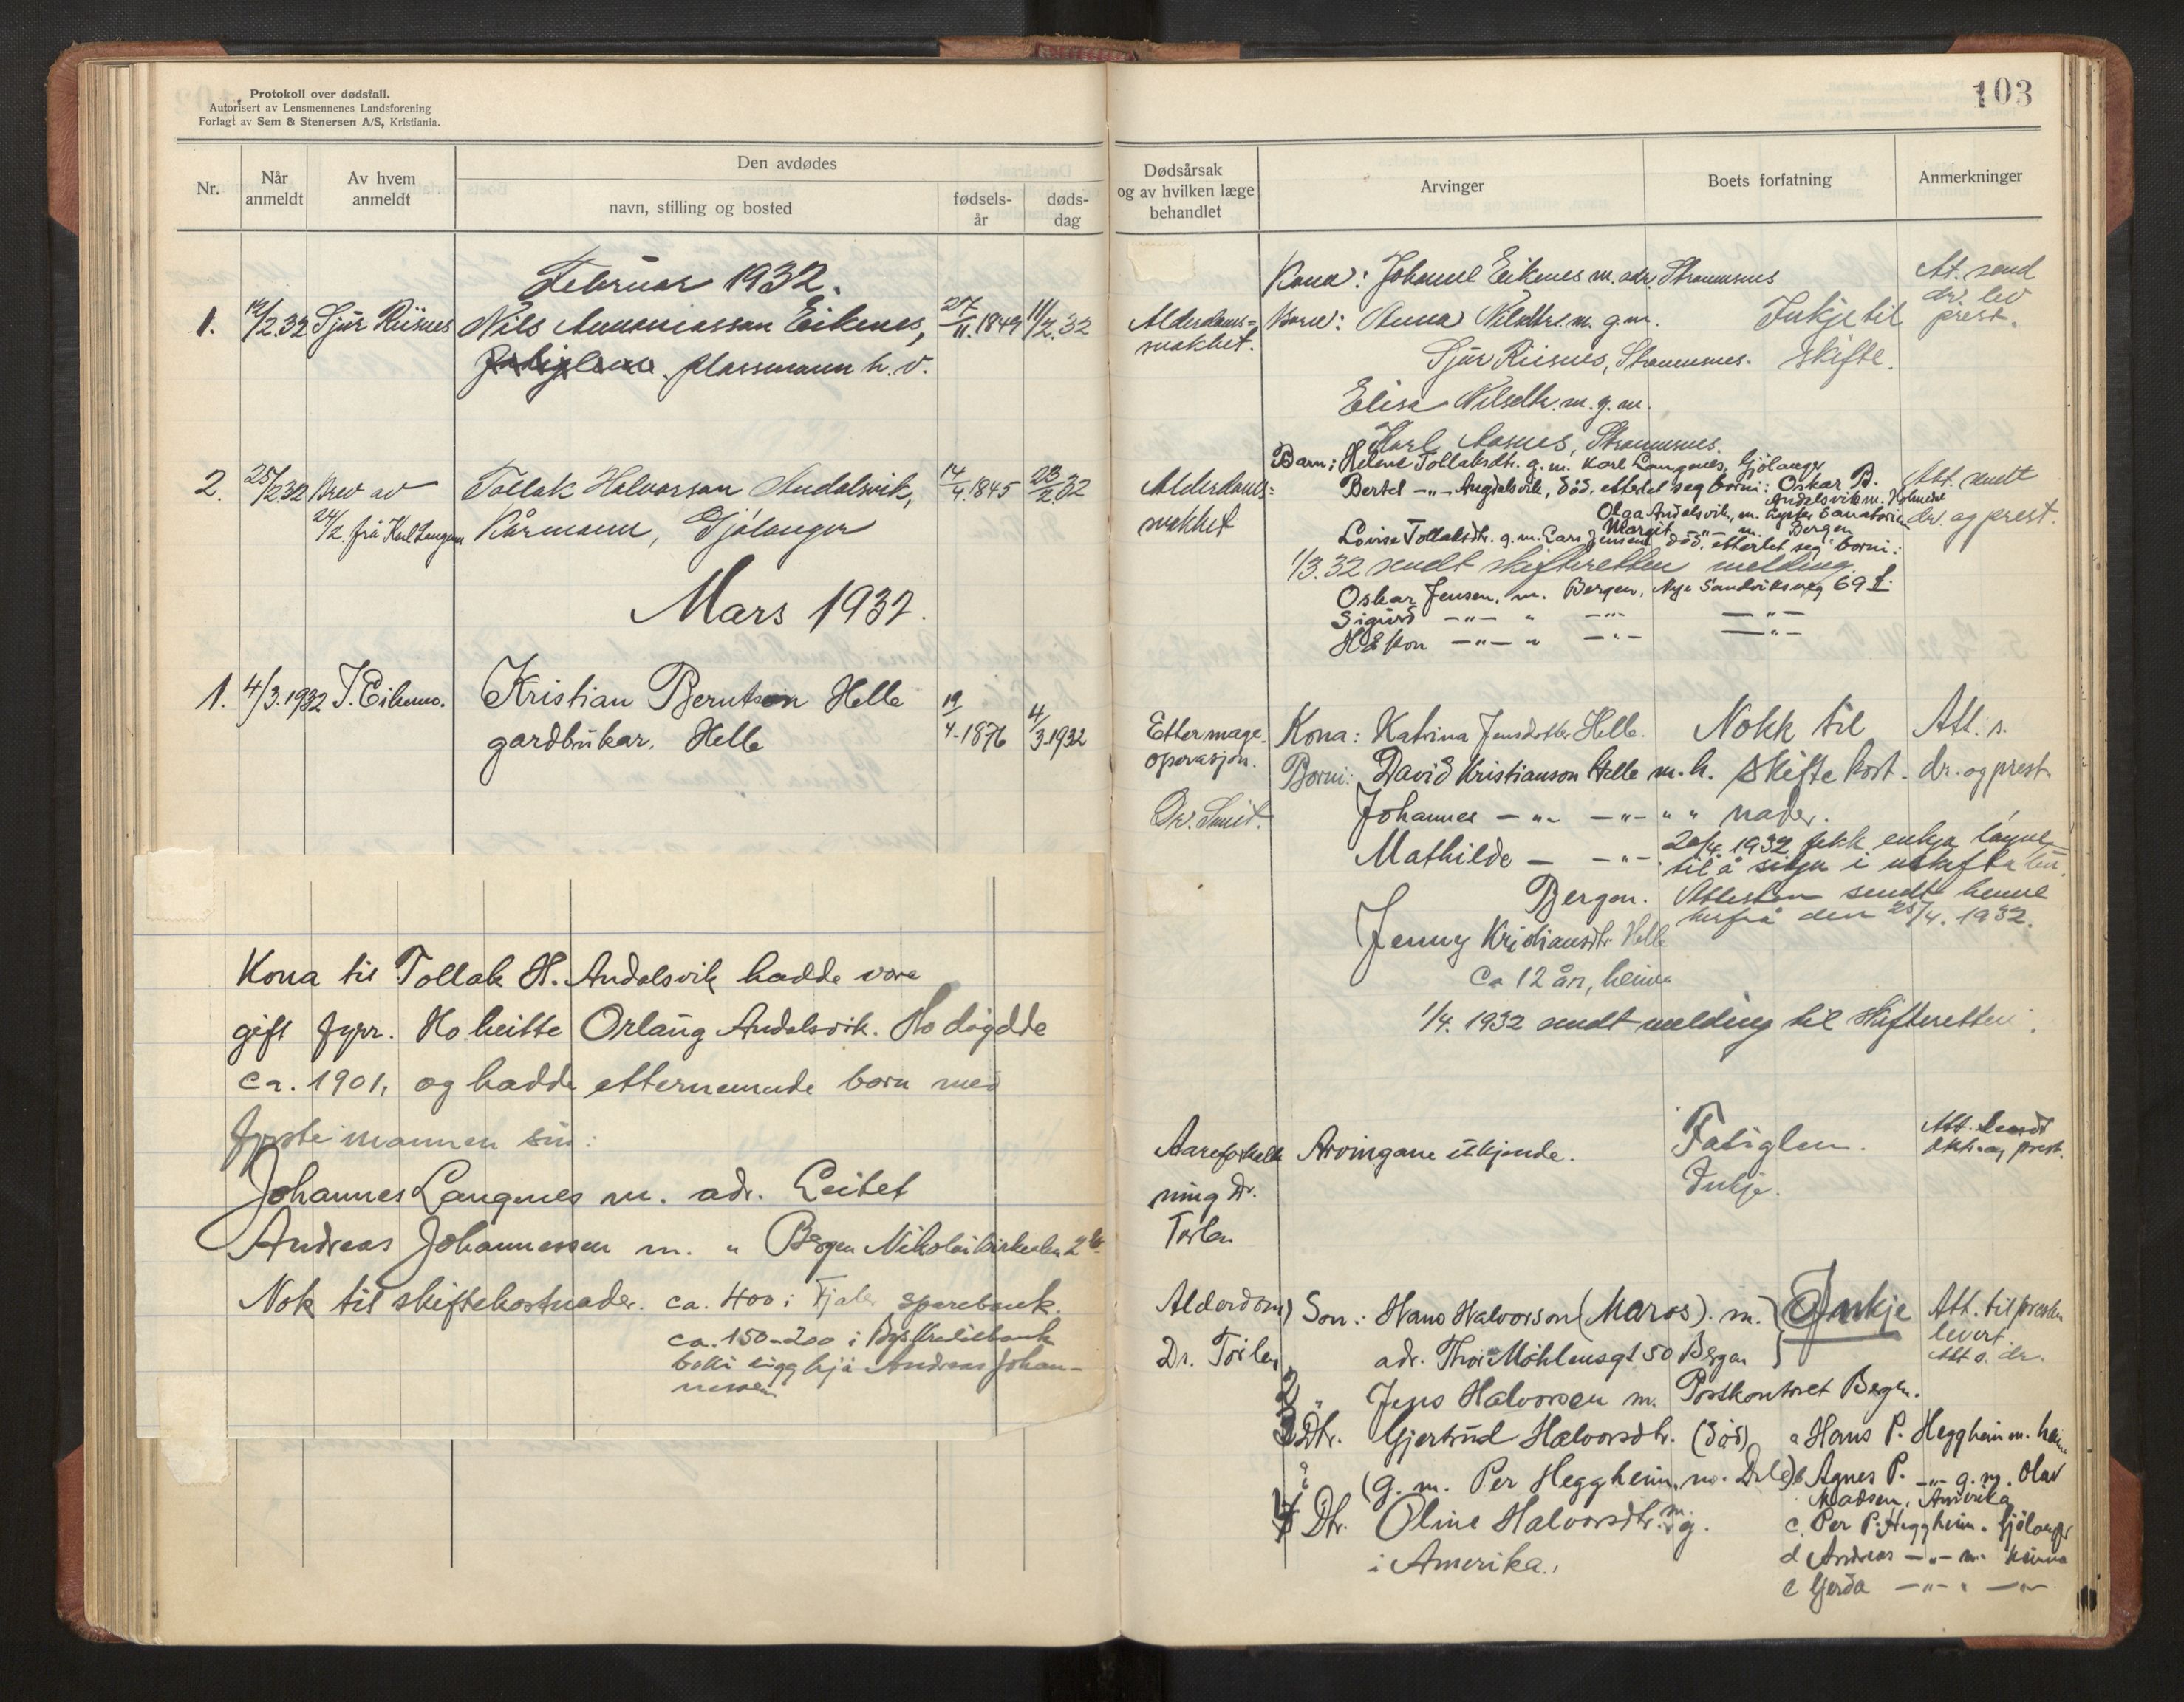 Protokoll over dødsfall.
Autorisert av Lensmennenes Landsforening
Forlagt av Sem & Stenersen A/S, Kristiania.
Nr.
Når anmeldt
Av hvem anmeldt
Den avdødes
navn, stilling og bosted
fødsels-
år
døds-
dag
Februar 1932.
1. 12/2.32 Sjur Riisnes Nils Eikenes, 27/11.1849 11/2.32
plassmann h. v.
2. 25/2.32 Brev av Tollak Halvorson Andalsvik, 14/4.1845 23/2.32
24/2. frå Karl Langenes Kårmann, Gjølanger
Mars 1932.
1. 4/3.1932 T. Eikemo. Kristian Berntson Helle 19/4-1876 4/3.1932
gardbrukar. Helle
Kona til Tollak H. Andalsvik hadde vore
gift fyrr. Ho heitte Orlaug Andalsvik. Ho døydde
ca. 1901, og hadde etternemnde born med
fyrste mannen sin:
Johannes Langenes m. adr. Leitet
Andreas Johannessen m. " Bergen Nikolaikirkealm 2
Nok til skiftekostnader. ca. 400 i Fjaler sparebank.
ca. 150-200 i kreditbank
boki ligg hjå Andreas Johan-
nessen
103
Dødsårsak
og av hvilken læge
behandlet
Arvinger
Boets forfatning
Anmerkninger
Kona: Johanne Eikenes m. adr. Straumsnes
At. send
dr. lev
prest.
Alderdoms=
svakhet.
Born: Anna Nilsdtr. m. g.m.
Sjur Riisnes, Straumsnes.
Inkje til
skifte.
Elisa Nilsdtr. m. g. m.
Karl Aasnes, Straumsnes.
Barn: Helene Tollaksdtr. g. m. Karl Langenes, Gjølanger
Alderdoms=
svakhet
Bertel -"- Andalsvik, død, etterlet seg borni: Oskar B.
Andalsvik m. Holmedal
Olga Andalsvik, m. Lyster Sanatorium
Margit -"- m. Bergen
Att. sendt
dr. og prest.
Lovise Tollaksdtr. g. m. Lars Jensen død, etterlet seg borni:
1/3.32 sendt skifteretten melding.
Oskar Jensen, m. Bergen, Nye Sandviksveg 69 I.
Sigurd -"- " -"- -"-
Håkon -"- " -"- -"-
Etter mage-
operasjon.
Dr. Smit.
Kona: Katrina Jensdotter Helle.
Borni: David Kristianson Helle m. h.
Johannes -"- -"- " "
Mathilde - -"-
Bergen.
Jenny Kristiansdtr Helle
ca 12 år, heime
Nokk til
skiftekost-
nader.
Att. s.
dr. og prest.
20/4 1932 fekk enkja løyve
til å sitja i uskifta bu.
Attesten sendt henne
herfrå den 25/4. 1932.
1/4. 1932 sendt melding til skifteretten.
Aareforkalk
ning Dr.
Torlen
Arvingane ukjende.
Fatiglem.
Inkje.
Att. sendt
dkt. og prest.
Alderdom
Dr. Torlen
Son: Hans Halvorson (Maros). m.
adr. Thor Møhlensgt 50 Bergen
Inkje
Att. til presten
levert.
Att s. dr.
2 " Jens Halvorsen m. Postkontoret Bergen.
3 Dtr. Gjertrud Halvorsdtr. (død)
(g. m. Per Heggheim, m. Dale)
4 Dtr. Oline Halvorsdtr. m. g.
i Amerika.
a Hans P. Heggheim m. heime
b Agnes P. -"- g. m. Olav
Madsen, Amerika
c. Per P. Heggheim. Gjølanger
d Andreas -"- m. heime
e Gjerda -"- " -"-